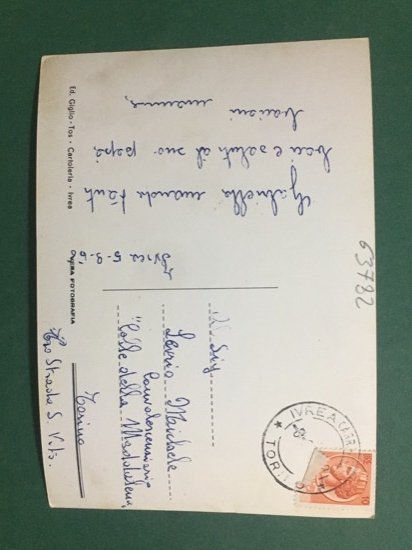 Ivrea 5-9-6
Gabriella manda tanti
baci e saluti al suo papà.
bacioni
Ed. Giglio - Tos - Cartoleria - Ivrea
VERA FOTOGRAFIA
63782
IVREA
TORINO
10
Sig
Saverio
Convalescenziario
"Colle della Maddalena"
Torino
Strada S. Vito